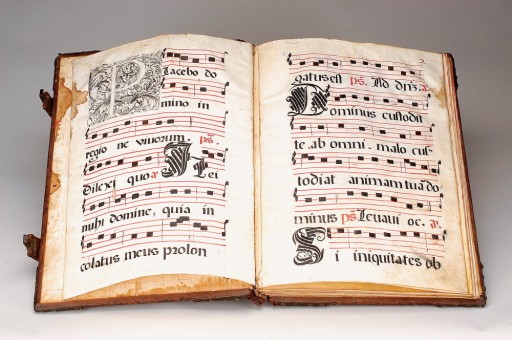 Placebo do
mino in
regio ne viuorum. ps.
Dilexi quo Hei
mihi domine, quia in
colatus meus prolon
gatus est ps. Ad
Dominus custodit
te. ab omni. malo cus=
todiat animam tuā do
minus ps. Leuaui oc. a.
Si iniquitates ob